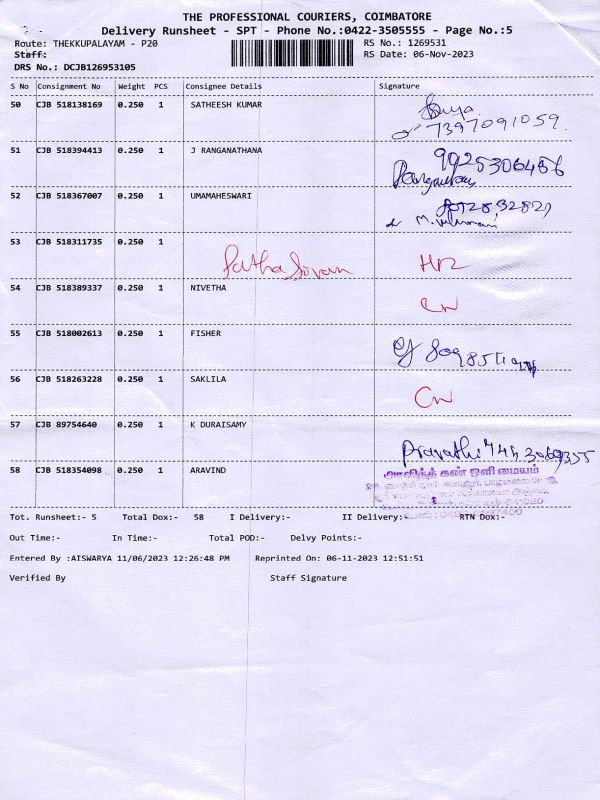 THE PROFESSIONAL COURIERS, COIMBATORE
Delivery Runsheet - SPT - Phone No.:0422-3505555 - Page No.:5
Route: THEKKUPALAYAM - P20 RS No.: 1269531
Staff: RS Date: 06-Nov-2023
DRS No.: DCJB126953105
S No Consignment No Weight PCS Consignee Details Signature
50 CJB 518138169 0.250 1 SATHEESH KUMAR
7397091059
51 CJB 518394413 0.250 1 J RANGANATHANA
9025306456
52 CJB 518367007 0.250 1 UMAMAHESWARI
53 CJB 518311735 0.250 1
54 CJB 518389337 0.250 1 NIVETHA
55 CJB 518002613 0.250 1 FISHER
56 CJB 518263228 0.250 1 SAKLILA
57 CJB 89754640 0.250 1 K DURAISAMY
58 CJB 518354098 0.250 1 ARAVIND
அரவிந்த் கண் ஒளி மையம்
Tot. Runsheet:- 5 Total Dox:- 58 I Delivery:- II Delivery:- RTN Dox:-
Out Time:- In Time:- Total POD:- Delvy Points:-
Entered By :AISWARYA 11/06/2023 12:26:48 PM Reprinted On: 06-11-2023 12:51:51
Verified By Staff Signature